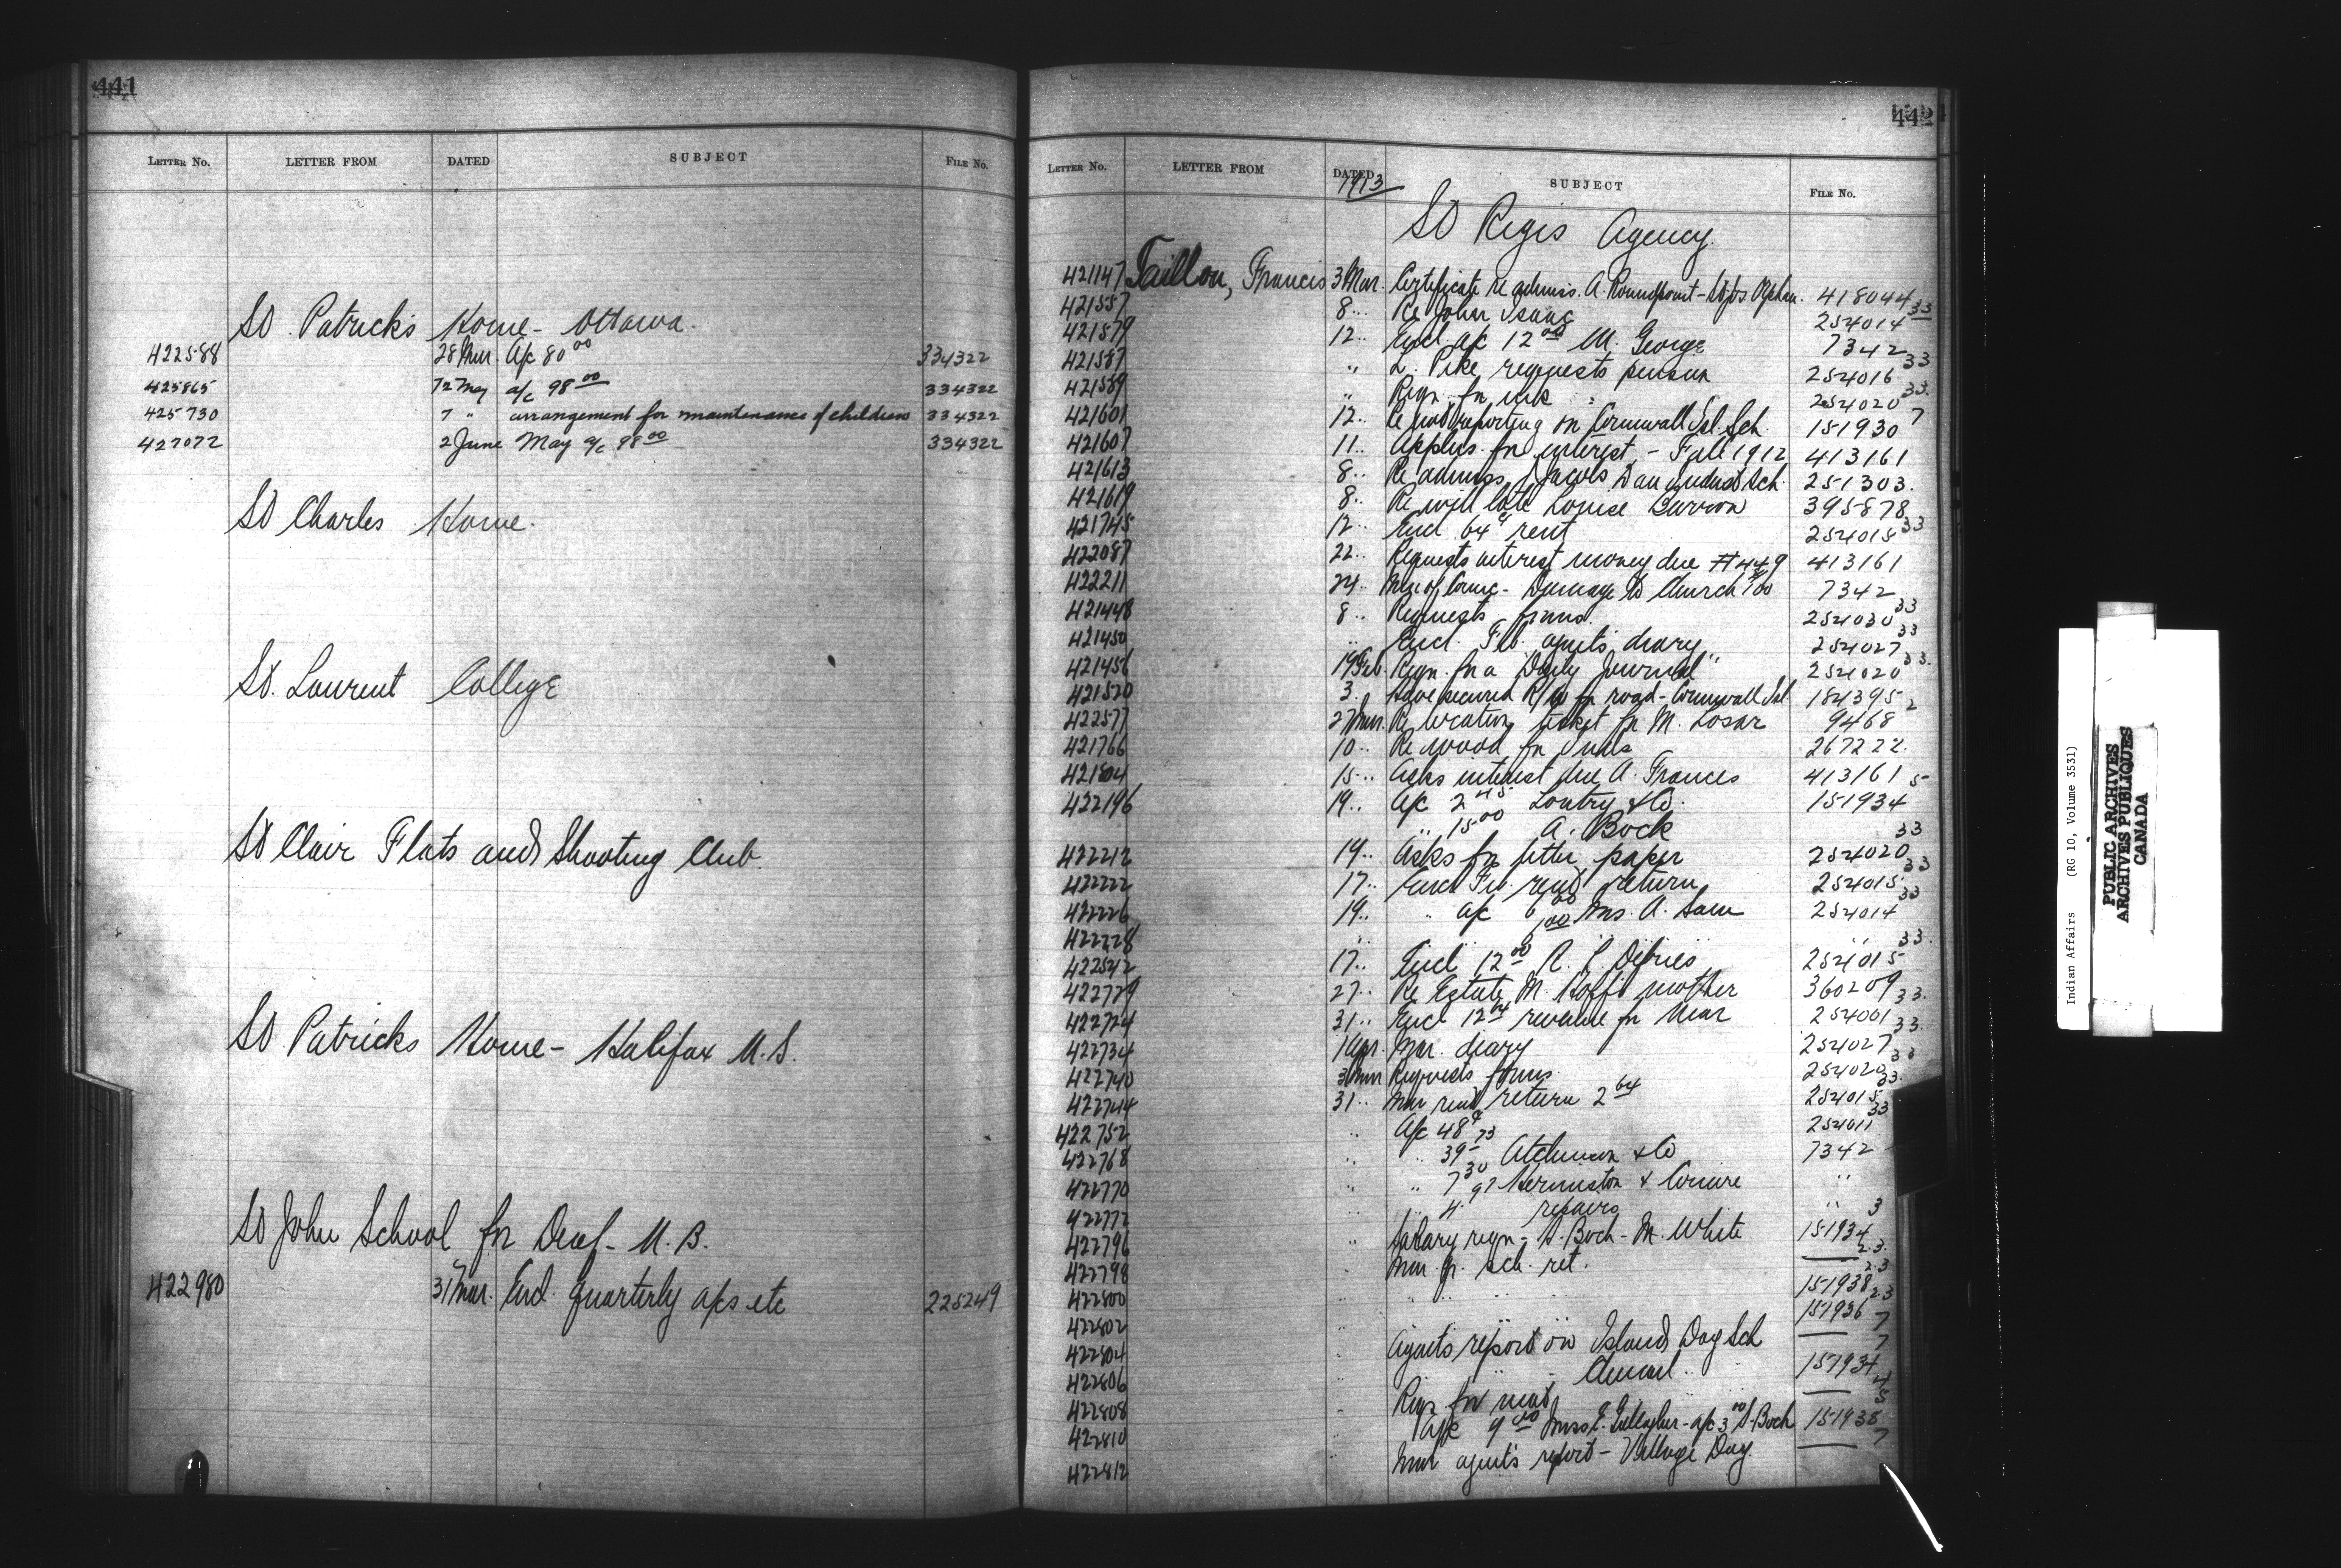 441
LETTER No. LETTER FROM DATED SUBJECT FILE No.
St. Patrick's Home - Ottawa.
422588 28 Mar. A/c 80 00 334322
425865 12 May a/c 98 00 334322
425730 7 " arrangement for maintenance of children 334322
427072 2 June May a/c 98 00 334322
St Charles Home.
St. Laurent College
St Clair Flats and Shooting Club
St Patricks Home - Halifax N.S.
St John School for Deaf - N.B.
422980 31 Mar. Encl. quarterly a/cs etc 225249
442
LETTER No. LETTER FROM DATED SUBJECT FILE No.
1913
St Regis Agency.
421147 Taillon, Francis 3 Mar. Certificate re admiss. A. Roundpoint - Orphan. 418044
421557 8 .. Re John Isaac 254014 33
421579 12 .. Encl. a/c 12 00 M. George 7342
421587 .. L. Pike requests pension 254016 33
421589 .. Reqn. for ink 254020 33
421601 12 .. Re not reporting on Cornwall Isl. Sch. 151930 7
421607 11 .. Applies for interest - Fall 1912 413161
421613 8 .. Re admiss. J Jacobs Dau Indust Sch 251303
421619 8 .. Re will late Louise 395878
421745 12 .. Encl 64 ¢ rent 254015 33
422087 22 .. Requests interest money due #449 413161
422211 24 .. Min of Counc - Damage to Church 7342
421448 8 .. Requests forms. 254030 33
421450 .. Encl. Feb. agent's diary 254027 33
421456 19 Feb Reqn. for a "Daily Journal" 254020 33
421520 3 .. Have secured R/W for road - Cornwall Isl 184395 2
422577 27 Mar. Re location ticket for M. Losar 9468
421766 10 .. Re wood for Inds 267222
421804 15 .. Asks interest due A. Frances 413161
422196 19 .. A/c 2 45 Lontry & Co. 151934 5
.. 15 00 A. Bock
422212 19 .. Asks for letter paper 254020 33
422222 17 .. Encl Feb. rent return 254015 33
422226 19 .. " a/c 6 00 Mrs. A. Sam 254014 33
422228 .. 00 ..
422542 17 .. Encl 12 00 R. P. Defries 254015 33
422729 27 .. Re Estate M. mother 360209
422724 31 .. Encl 12 64 revenue for Mar 254001 33
422734 1 Apr. Mar. diary 254027 33
422740 3 Mar Requests forms. 254020 33
422744 31 .. Mar rent return 2 64 254015 33
422752 .. A/c 48 ¢ 254011 33
422768 .. " 39 73 Atchinson & Co 7342
422770 .. " 7 30 Hermiston & ..
422772 .. " 4 97 repairs ..
422796 .. Salary reqn - A. Bock - M. White 151934 3
422798 .. Mar. qr. sch. ret. 23
422800 .. .. .. 151938 23
422802 151936 23
422804 .. Agents report on Island Day Sch 7
422806 .. .. Chenail .. 151934 7
422808 Reqn for
422810 .. A/c 9 00 Miss E. Gallagher - a/c 3 00 A. Bock 151938
422812 .. Mar agent's report - Village Day. 7
Indian Affairs (RG 10, Volume 3531)
PUBLIC ARCHIVES
ARCHIVES PUBLIQUES
CANADA